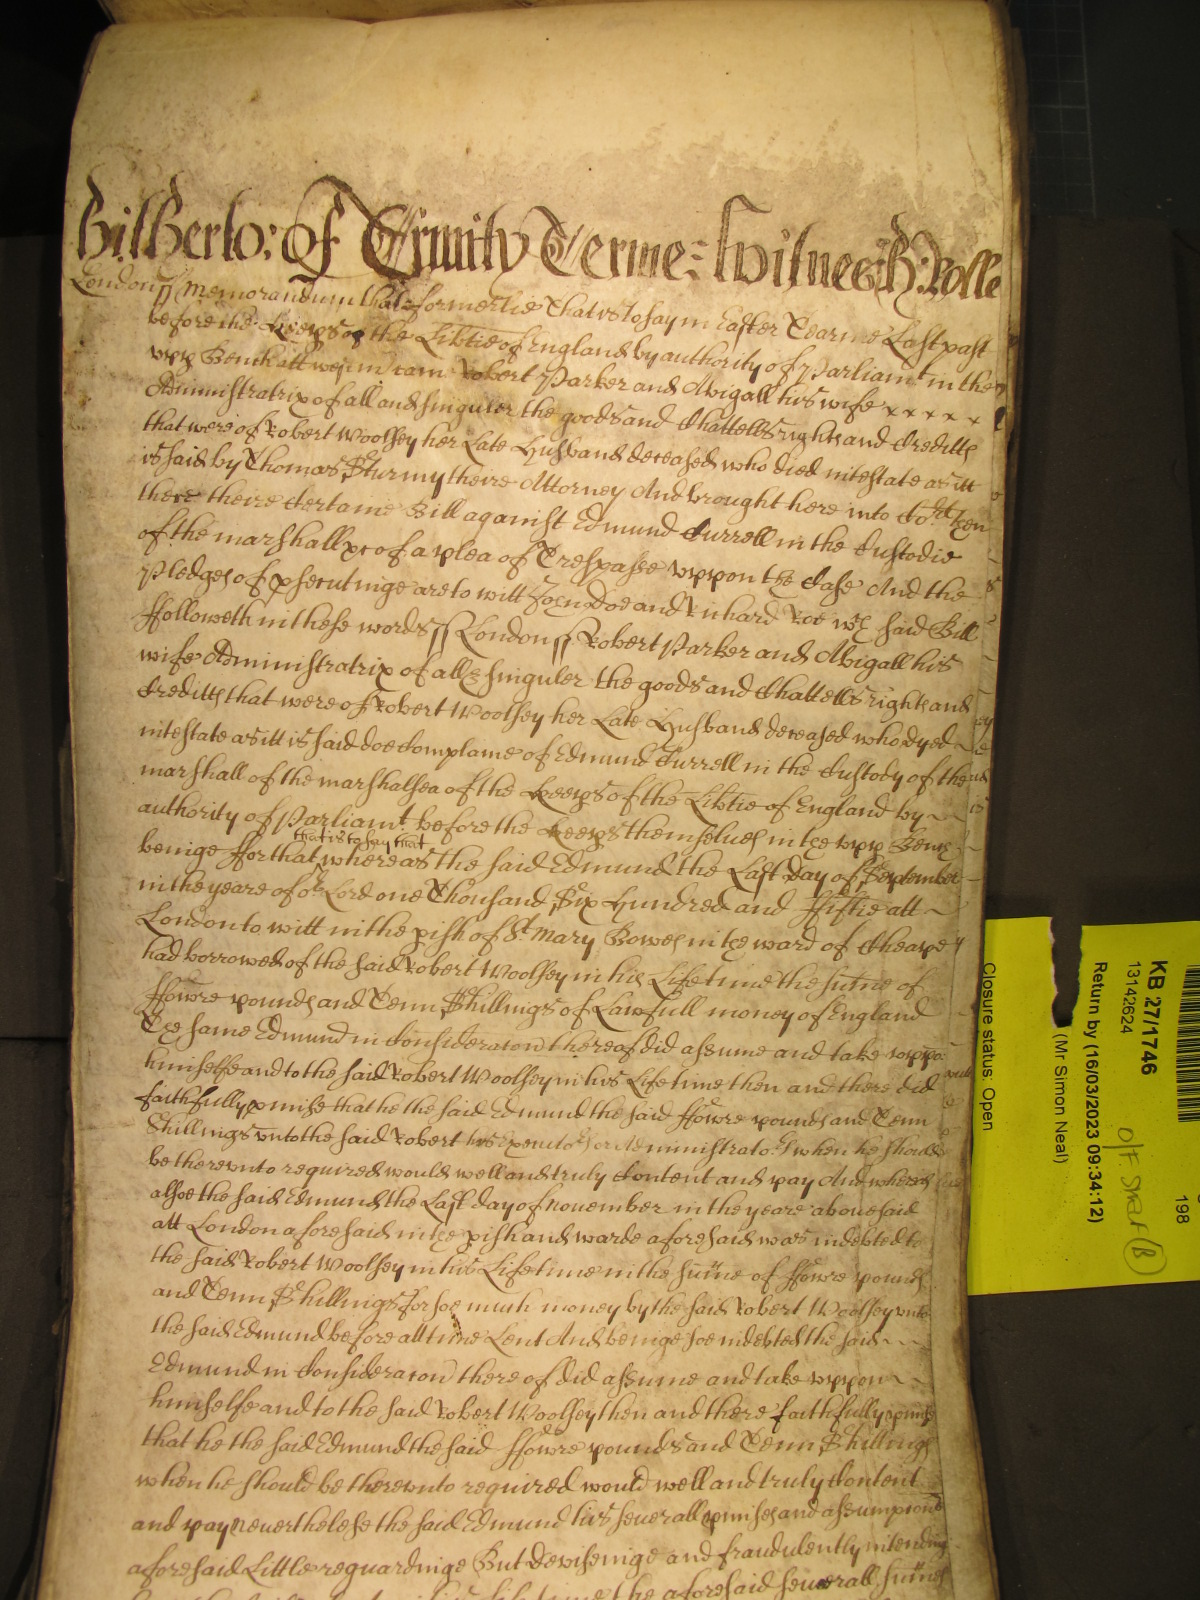 Hitherto: Of Trinity Terme: Witnes: H: Rolle
London ss Memorandum that formerlie that is to say in Easter Tearme Last past
before the Keeps of the Libtie of England by authority of Parliamt. in the
upp Bench att westm cam Robert Parker and Abigall his wife x x x x x
Administratrix of all and singuler the goods and Chattells rights and Creditts
that were of Robert Woolsey her Late Husband deceased who died intestate as itt
is said by Thomas Sturmy theire Attorney And brought here into Cort then
there theire Certaine Bill against Edmund Currell in the Custodie
of the marshall &c of a plea of Trespasse uppon the Case And the
Pledges of psecutinge are to witt John Doe and Richard Roe wch said Bill
ffolloweth in these words ss London ss Robert Parker and Abigall his
wife Administratrix of all & singuler the goods and Chattells rights and
Creditts that were of Robert Woolsey her Late Husband deceased who dyed
intestate as itt is said doe Complaine of Edmund Currell in the Custody of the
marshall of the marshalsea of the Keeps of the Libtie of England by
authority of Parliamt. before the Keeps themselves in the upp Bench
that is to say that
beinge ffor that whereas the said Edmund the Last Day of September
in the yeare of or Lord one Thousand Six Hundred and ffiftie att
London to witt in the pish of St. Mary Bowes in the ward of Cheape
had borrowed of the said Robert Woolsey in his Life time the sume of
ffowre pounds and Tenn Shillings of Lawfull money of England
The same Edmund in Consideracon thereof did assume and take uppo
himselfe and to the said Robert Woolsey in his Life time then and there did
faithfully pmise that he the said Edmund the said ffowre pounds and Tenn
Shillings unto the said Robert his Executors or Administrators when he should
be thereunto required would well and truly Content and pay And whereas
alsoe the said Edmund the Last day of November in the yeare abovesaid
att London aforesaid in the pish and warde aforesaid was indebted to
the said Robert Woolsey in his Life time in the sume of ffowre pounds
and Tenn Shillings for soe much money by the said Robert Woolsey unto
the said Edmund before all time Lent And beinge soe indebted the said
Edmund in Consideracon there of did assume and take uppon
himselfe and to the said Robert Woolsey then and there faithfully pmise
that he the said Edmund the said ffowre pounds and Tenn Shillings
when he should be thereunto required would well and truly Content
and pay Neverthelesse the said Edmund his severall pmises and assumptions
aforesaid Little reguardinge But deviseinge and fraudulently intending
the aforesaid severall sumes
KB 27/1746
13142624
Return by (16/03/2023 09:34:12)
(Mr Simon Neal)
Closure status: Open
198